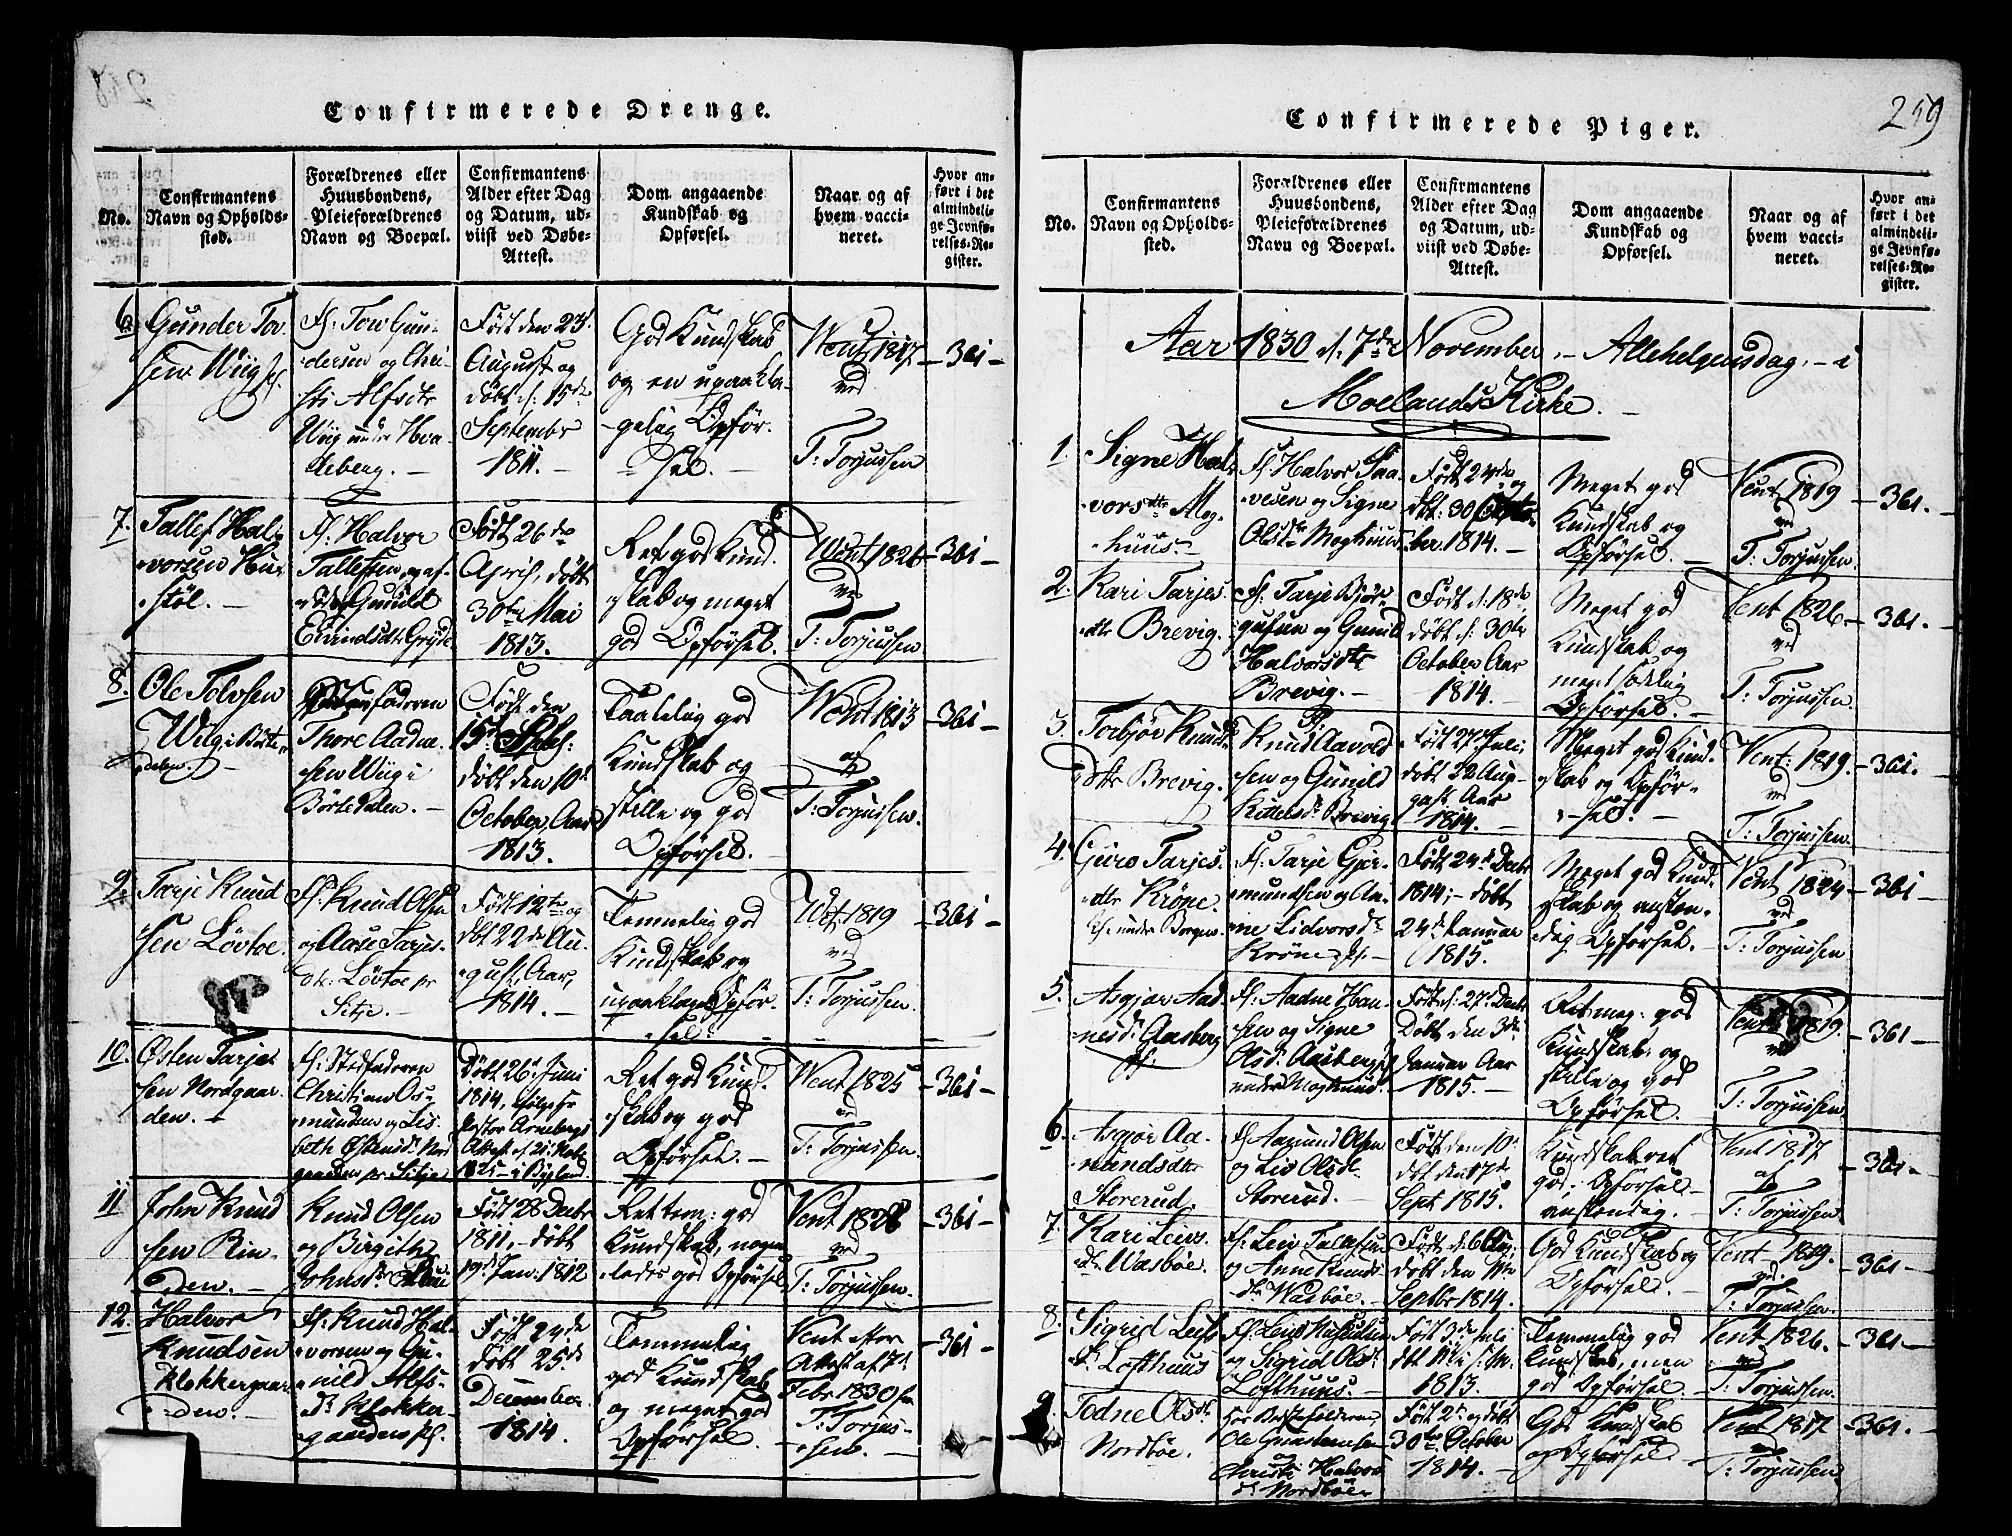 Confirmerede Drenge.
No.
Confirmantens
Navn og Opholds-
sted.
Forældrenes eller
Huusbondens,
Pleieforældrenes
Navn og Boepæl.
Confirmantens
Alder efter Dag
og Datum, ud-
viist ved Døbe-
Attest.
Dom angaaende
Kundskab og
Opførsel.
Naar og af
hvem vacci-
neret.
Hvor an-
ført i det
almindeli-
ge Jevnfø-
relses-Re-
gister.
6.
Gunder Tov-
sen Wiig
F: Tov Gun-
dersen og Chri-
sti Alfsdtr
Wiig under Hva-
deberg.
Født den 23.
August og
døbt d: 15de
September
1811.
God Kundskab
og en upaakla-
gelig Opför-
sel.
Vent 1817
ved
T: Torjussen
361
7.
Tallef Hal-
vorsen
støl.
F: Halvor
Tallefsen, og
Gunild
Eivindsdtr
Født 26de
April, døbt
30te Mai
1813.
Ret god Kund-
skab og meget
god Opførsel.
Vent 1826
ved
T: Torjussen
361
8.
Ole Tolvsen
Wiig i Børte-
dalen.
Thore Aadne-
sen Wiig i
Børtedalen.
Født den
15de
døbt den 10de
October, Aar
1813.
Taalelig god
Kundskab og
stille og god
Opførsel.
Vent 1813
af
T: Torjussen.
361
9.
Tarje Knud
sen Lövtoe.
F: Knud Olsen
og Aase Tarjes-
dtr: Lövtoe
Født 12te og
dbt 22de Au-
gust, Aar,
1814.
Temmelig god
Kundskab og
upaaklagel: Opför-
sel.
Vent 1819
ved
T: Torjussen.
361
10.
Østen Tarje
sen Nordgaar-
den.
F: Stedfaderen
Christian Os-
mundsen og Lis-
beth Østensd: Nord
gaarden
Døbt 26de Juni
1814, ifølge Hr
Pastor Arnebergs
Attest af 21
1825 i Bygland
Ret god Kund-
skab og god
Opförsel.
Vent 1825
ved
T: Torjussen.
361
11
John Knud
sen Rin-
den.
Knud Olsen
og Birgithe
Johnsdtr
Født 28 Decbr
1811. døbt
19de Jan: 1812
Ret tem: god
Kundskab, nogen-
ledes god Opførsel
Vent 1828
ved
T: Torjussen.
361
12.
Halvor
Knudsen
Klokkergaar-
den.
F: Knud Hal-
vorsen og Gu-
nild Alfs-
dr Klokker-
gaarden
Født 24de
Døbt 25de
December
1814.
Temmelig
god Kundskab
og meget god
Opførsel.
Vent efter
Attest af 7de
Febr 1830
T: Torjus-
sen.
361
259
Confirmerede Piger.
No.
Confirmantens
Navn og Opholds-
sted.
Forældrenes eller
Huusbondens,
Pleieforældrenes
Navn og Boepæl.
Confirmantens
Alder efter Dag
og Datum, ud-
viist ved Døbe-
Attest.
Dom angaaende
Kundskab og
Opførsel.
Naar og af
hvem vacci-
neret.
Hvor an-
ført i det
almindeli-
ge Jevnfø-
relses-Re-
gister.
Aar 1830 d. 7de November, Allehelgensdag, i
Moelands Kirke.
1.
Signe Hal-
vorsdtr Mog-
huus.
F: Halvor Taa-
vesen og Signe
Olsdtr Moghuus
Født 24de og
dbt: 30 Octo-
ber 1814.
Meget god
Kundskab og
Opførsel.
Vent 1819
ved
T: Torjussen.
361.
2.
Kari Tarjes-
dtr Brevig.
F: Tarje Bjør-
gufsen og Gunild
Halvorsdtr
Brevig.
Født d: 18de,
døbt d: 30te
October Aar
1814.
Meget god
Kundskab og
meget sædelig
Opførsel.
Vent 1826
ved
T: Torjussen
361.
3.
Torbjør Knuds-
dtr Brevig.
Knud Aavold
sen og Gunild
Kittelsdr Brevig
Født 27de Juli,
døbt 22 Aug-
ust Aar
1814.
Meget god Kund-
skab og Opför-
sel.
Vent: 1819.
ved
T: Torjussen.
361.
4.
Guro Tarjes-
dtr Kröne.
under
F: Tarje Gjer-
mundsen og An-
ne Lidvorsdr
Kröne
Født 24de Decbr
1814; døbt
24de Januar
1815.
Meget god Kund-
skab og ansten-
dig Opførsel.
Vent 1824
ved
T: Torjussen.
361
5.
Asgjær Aad-
nesd: Aasberg
F: Aadne Han-
sen og Signe
Olsd: Aasberg
under Moghuus.
Født d: 27de Decbr
Døbt den 3de
Januar Aar
1815.
Ret meg: god
Kundskab og
stille og god
Opførsel.
Vent 1819.
ved
T: Torjussen
361
6.
Asgjør Aa-
nundsdtr
Storerud.
F: Aanund Olsen
og Liv Olsdtr
Storerud.
Født den 10de
dbt den 17de
Sept 1815
Kundskab ret
god; Opførsel
anstendig.
Vent 1817
af
T: Torjussen.
361
7.
Kari Leivs-
dtr Wasböe.
F: Leiv Tallefsen
og Anne Knuds-
dtr Wasböe.
Født d: 6 Aug:
døbt den 11te
Septbr 1814.
God Kundskab og
Opførsel.
Vent 1819.
ved
T: Torjussen.
361
8.
Sigrid Leifs
dr Lofthuus
og Sigrid Olsdr
Lofthuus.
Født 3de Juli
1813.
Temmelig god
Kundskab, men
god Opførsel.
Vent 1826.
ved
T: Torjussen.
361
9.
Todne Olsdtr
Nordböe.
Hos Bestefaderen
Ole
og
Christi Halvors
dr Nordböe
Født 2de og døbt
30te October
1814.
God Kundskab
og Opførsel.
Vent 1817
ved
T: Torjussen.
361.